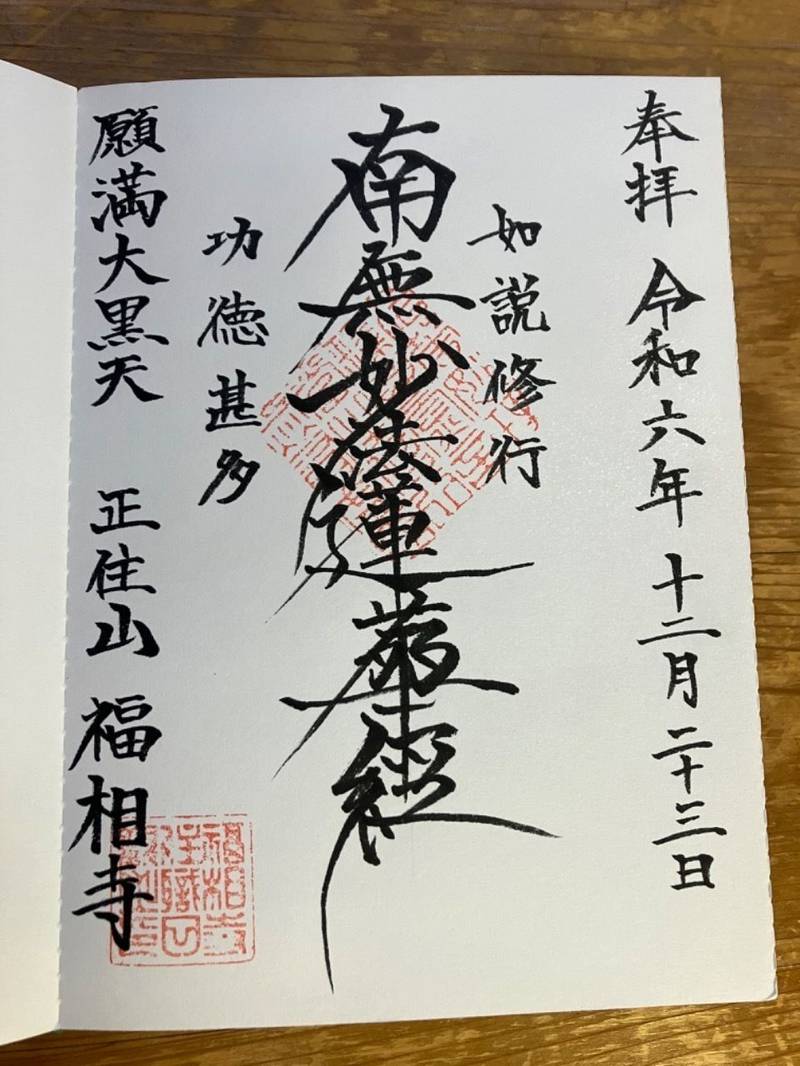 奉拝 令和六年 十二月二十三日
如説修行
南無妙法蓮華経
功徳甚多
願満大黒天 正住山 福相寺